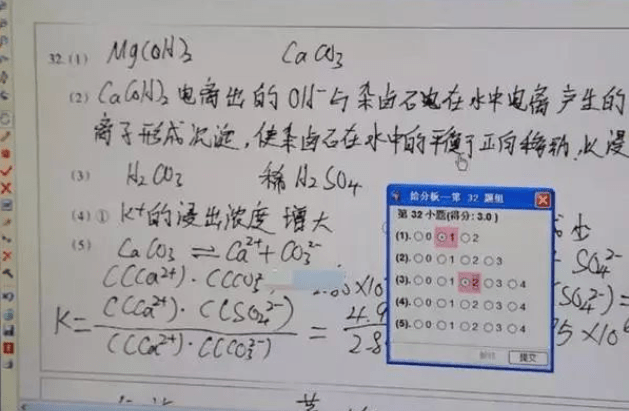 32.(1) Mg(OH)2 CaCO3
(2) Ca(OH)2 电离出的OH⁻与杂卤石在水中电离产生的
离子形成沉淀,使杂卤石在水中的平衡了正向移动,
(3) H2CO3 稀H2SO4
(4)① K⁺的浸出浓度 增大
(5) CaCO3 ⇌ Ca²⁺ + CO3²⁻
SO4²⁻
K = C(Ca²⁺)·C(SO4²⁻) / C(Ca²⁺)·C(CO3²⁻) =
给分板—第 32 题组
第 32 小题(得分: 3.0 )
(1). 0 1 2
(2). 0 1 2 3
(3). 0 1 2 3 4
(4). 0 1 2 3 4
(5). 0 1 2 3 4
提交